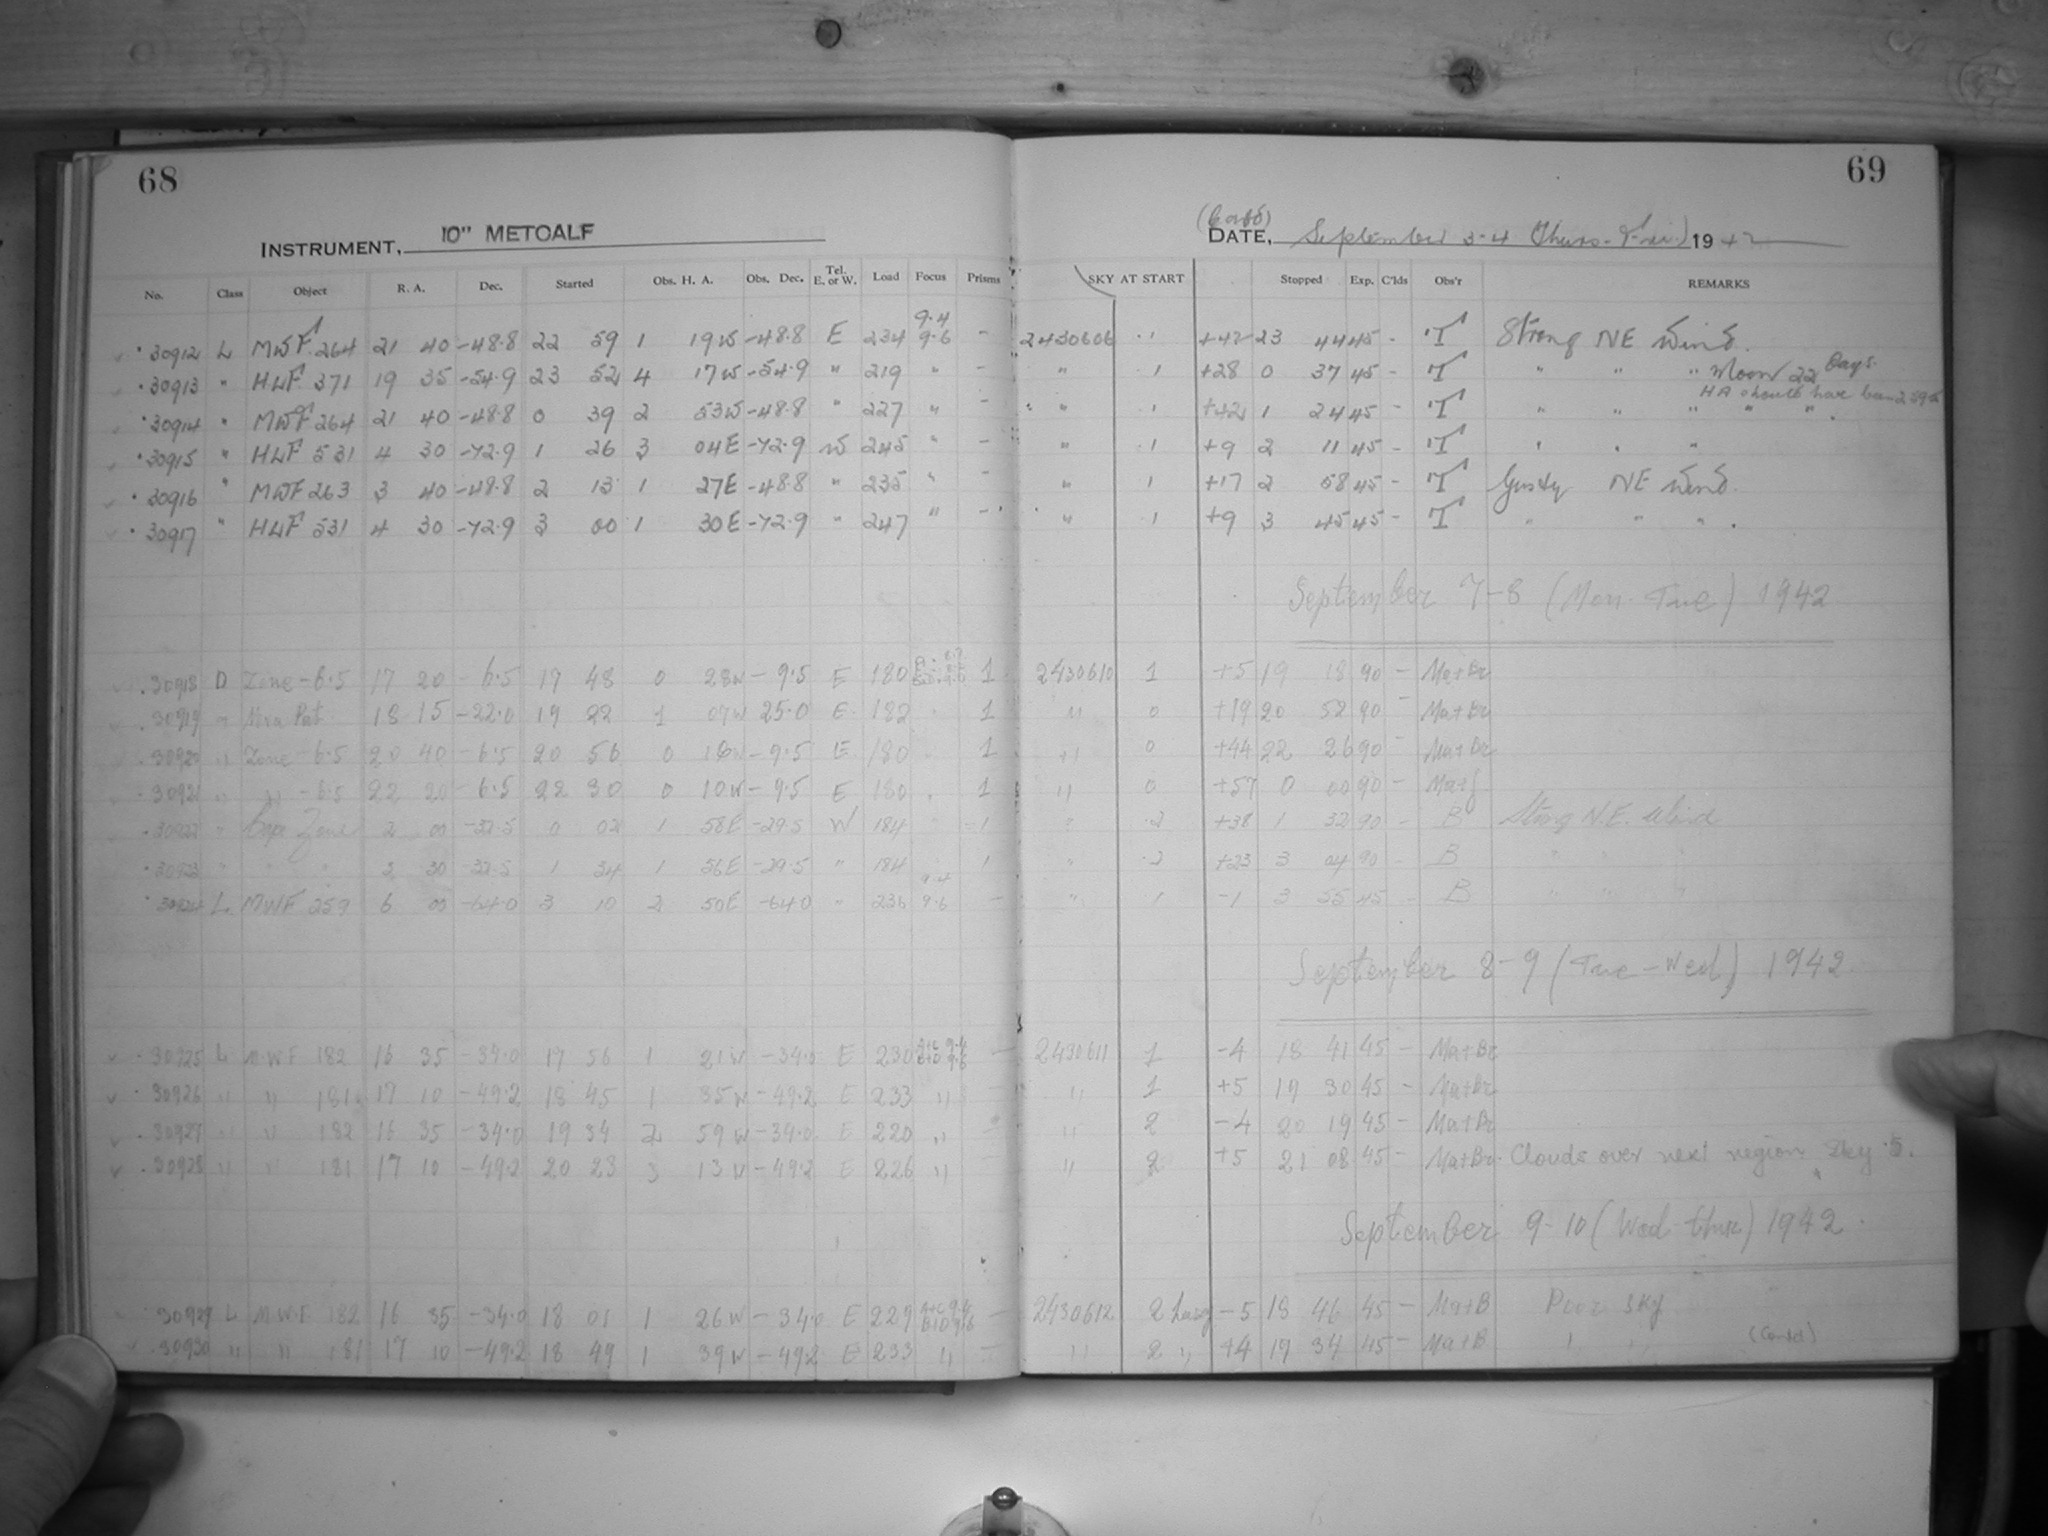 68
69
INSTRUMENT, 10" METCALF
(Contd)
DATE, September 3-4 (Thurs-Fri.) 1942
No. Class Object R. A. Dec. Started Obs. H. A. Obs. Dec. Tel. E. or W. Load Focus Prisms SKY AT START Stopped Exp. C'lds Obs'r REMARKS
30912 L MWF 264 21 40 -48.8 22 59 1 19W -48.8 E 234 9.4 9.6 - 2430606 1 +42 23 44 45 - T Strong NE Wind.
30913 " HLF 371 19 35 -54.9 23 52 4 17W -54.9 " 219 " - " 1 +28 0 37 45 - T " " " Moon 22 Days.
HA should have been 2 59
30914 " MWF 264 21 40 -48.8 0 39 2 53W -48.8 " 227 " - " 1 +42 1 24 45 - T " " " " " .
30915 " HLF 531 4 30 -72.9 1 26 3 04E -72.9 W 245 " - " 1 +9 2 11 45 - T " " "
30916 " MWF 263 3 40 -48.8 2 13 1 27E -48.8 " 235 " - " 1 +17 2 58 45 - T Gusty NE Wind.
30917 " HLF 531 4 30 -72.9 3 00 1 30E -72.9 " 247 " - " 1 +9 3 45 45 - T " " " .
September 7-8 (Mon-Tue) 1942
30918 D Zone -6.5 17 20 -6.5 17 48 0 28W -9.5 E 180 1 2430610 1 +5 19 18 90 - Ma+Br
30919 " Mra Pat 18 15 -22.0 19 22 1 07W 25.0 E 182 " 1 " 0 +19 20 52 90 - Ma+Br
30920 " Zone -6.5 20 40 -6.5 20 56 0 16W -9.5 E 180 " 1 " 0 +44 22 26 90 - Ma+Br
30921 " " -6.5 22 20 -6.5 22 30 0 10W -9.5 E 180 " 1 " 0 +57 0 00 90 - Ma+
30922 " Cape Zone 2 00 -32.5 0 02 1 58E -29.5 W 184 " 1 " 2 +38 1 32 90 - B Strong N.E. Wind
30923 " " " 3 30 -32.5 1 34 1 56E -29.5 " 184 " 1 " 2 +23 3 04 90 - B " " "
30924 L MWF 259 6 00 -64.0 3 10 2 50E -64.0 " 236 9.4 9.6 - " 1 -1 3 55 45 - B " " "
September 8-9 (Tue-Wed) 1942
30925 L M.W.F 182 16 35 -34.0 17 56 1 21W -34.0 E 230 A+C 9.4 B+D 9.6 - 2430611 1 -4 18 41 45 - Ma+Br
30926 " " 181 17 10 -49.2 18 45 1 35W -49.2 E 233 " " 1 +5 19 30 45 - Ma+Br
30927 " " 182 16 35 -34.0 19 34 2 59W -34.0 E 220 " " 2 -4 20 19 45 - Ma+Br
30928 " " 181 17 10 -49.2 20 23 3 13W -49.2 E 226 " " 2 +5 21 08 45 - Ma+Br Clouds over next region Sky 5.
September 9-10 (Wed-thur) 1942
30929 L M.W.F 182 16 35 -34.0 18 01 1 26W -34.0 E 229 A+C 9.4 B+D 9.6 - 2430612 2 hazy -5 18 46 45 - Ma+B Poor sky
30930 " " 181 17 10 -49.2 18 49 1 39W -49.2 E 233 " - " 2 " +4 19 34 45 - Ma+B " "
(Contd)